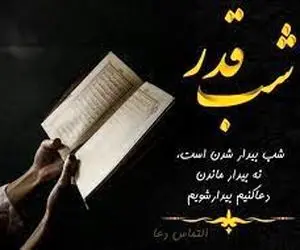 شب قدر
شب بیدار شدن است،
نه بیدار ماندن
دعاکنیم بیدارشویم
التماس دعا